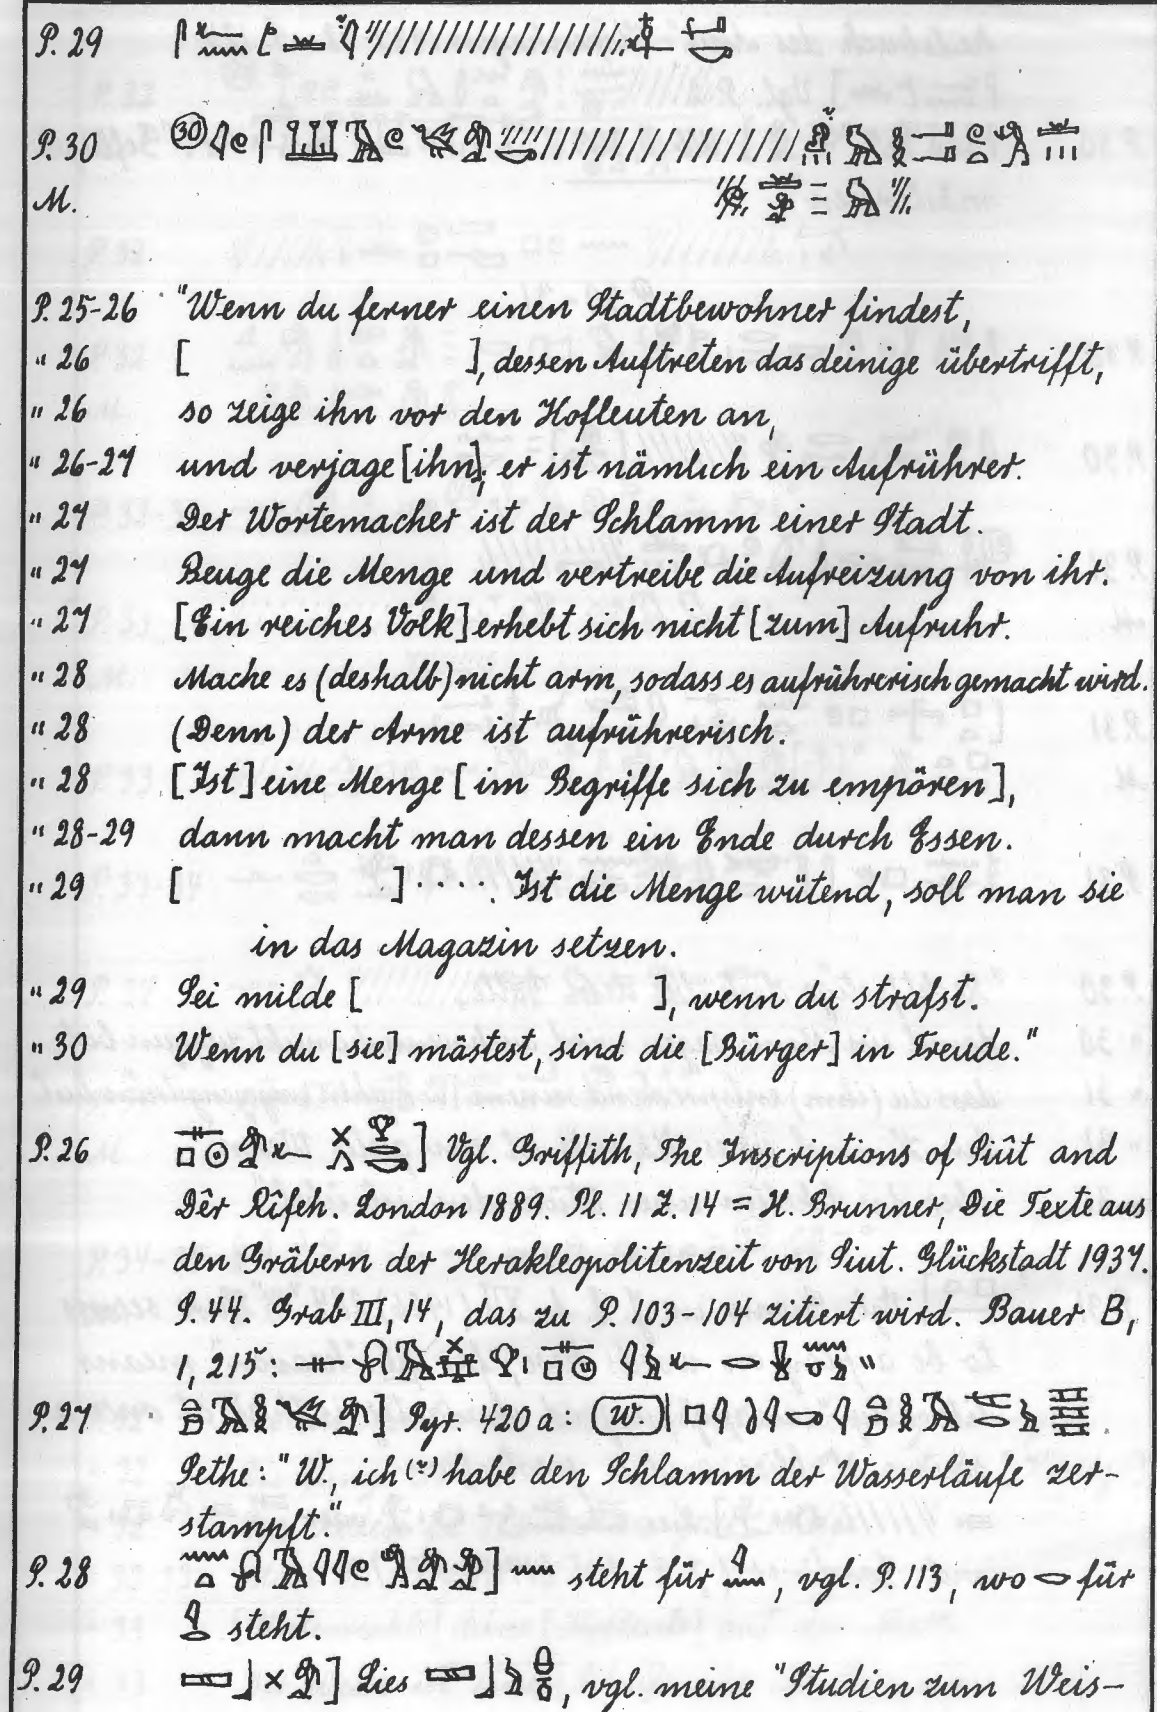 P. 29
P. 30 (30)
M.
P. 25-26 "Wenn du ferner einen Stadtbewohner findest,
" 26 [ ], dessen Auftreten das deinige übertrifft,
" 26 so zeige ihn vor den Hofleuten an,
" 26-27 und verjage [ihn]; er ist nämlich ein Aufrührer.
" 27 Der Wortemacher ist der Schlamm einer Stadt.
" 27 Beuge die Menge und vertreibe die Aufreizung von ihr.
" 27 [Ein reiches Volk] erhebt sich nicht [zum] Aufruhr.
" 28 Mache es (deshalb) nicht arm, sodass es aufrührerisch gemacht wird.
" 28 (Denn) der Arme ist aufrührerisch.
" 28 [Ist] eine Menge [im Begriffe sich zu empören],
" 28-29 dann macht man dessen ein Ende durch Essen.
" 29 [ ] .... Ist die Menge wütend, soll man sie
in das Magazin setzen.
" 29 Sei milde [ ], wenn du strafst.
" 30 Wenn du [sie] mästest, sind die [Bürger] in Freude."
P. 26 ] Vgl. Griffith, The Inscriptions of Siût and
Dêr Rîfeh. London 1889. Pl. 11 Z. 14 = H. Brunner, Die Texte aus
den Gräbern der Herakleopolitenzeit von Siut. Glückstadt 1937.
S. 44. Grab III, 14, das zu P. 103-104 zitiert wird. Bauer B,
1, 215:
P. 27 ] Pyr. 420 a: (W.)
Sethe: "W., ich (?) habe den Schlamm der Wasserläufe zer-
stampft."
P. 28 ] steht für , vgl. P. 113, wo für
steht.
P. 29 ] Lies , vgl. meine "Studien zum Weis-